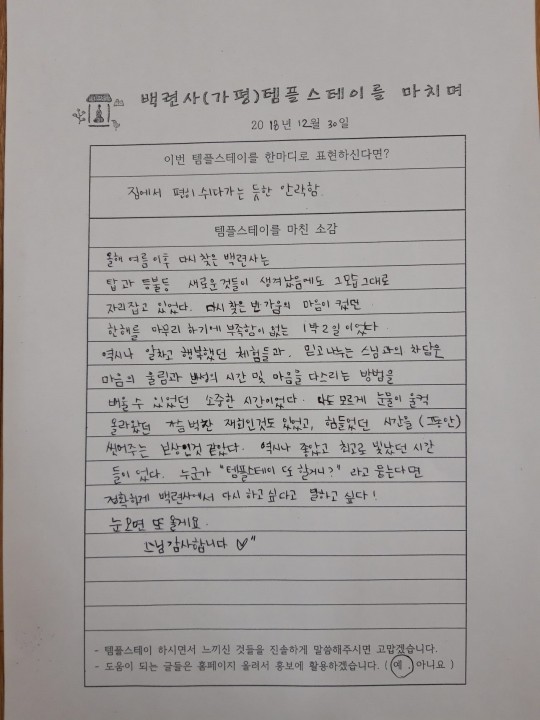 백련사(가평)템플스테이를 마치며
2018년 12월 30일
이번 템플스테이를 한마디로 표현하신다면?
집에서 편히 쉬다가는 듯한 안락함
템플스테이를 마친 소감
올해 여름이후 다시 찾은 백련사는
탑과 등불등 새로운것들이 생겨났음에도 그모습그대로
자리잡고 있었다. 다시찾은 반가움의 마음이 컸던
한해를 마무리 하기에 부족함이 없는 1박2일 이었다
역시나 알차고 행복했던 체험들과, 믿고나누는 스님과의 차담은
마음의 울림과 반성의 시간 및 마음을 다스리는 방법을
배울 수 있었던 소중한 시간이었다. 나도 모르게 눈물이 울컥
올라왔던 가슴벅찬 재회인것도 있었고, 힘들었던 시간을 (그동안)
씻어주는 보상인것 같았다. 역시나 좋았고 최고로 빛났던 시간
들이었다. 누군가 "템플스테이 또 할거니?" 라고 묻는다면
정확하게 백련사에서 다시 하고 싶다고 말하고 싶다!
눈오면 또 올게요.
스님감사합니다 ♡"
- 템플스테이 하시면서 느끼신 것들을 진솔하게 말씀해주시면 고맙겠습니다.
- 도움이 되는 글들은 홈페이지 올려서 홍보에 활용하겠습니다. ( 예 , 아니요 )